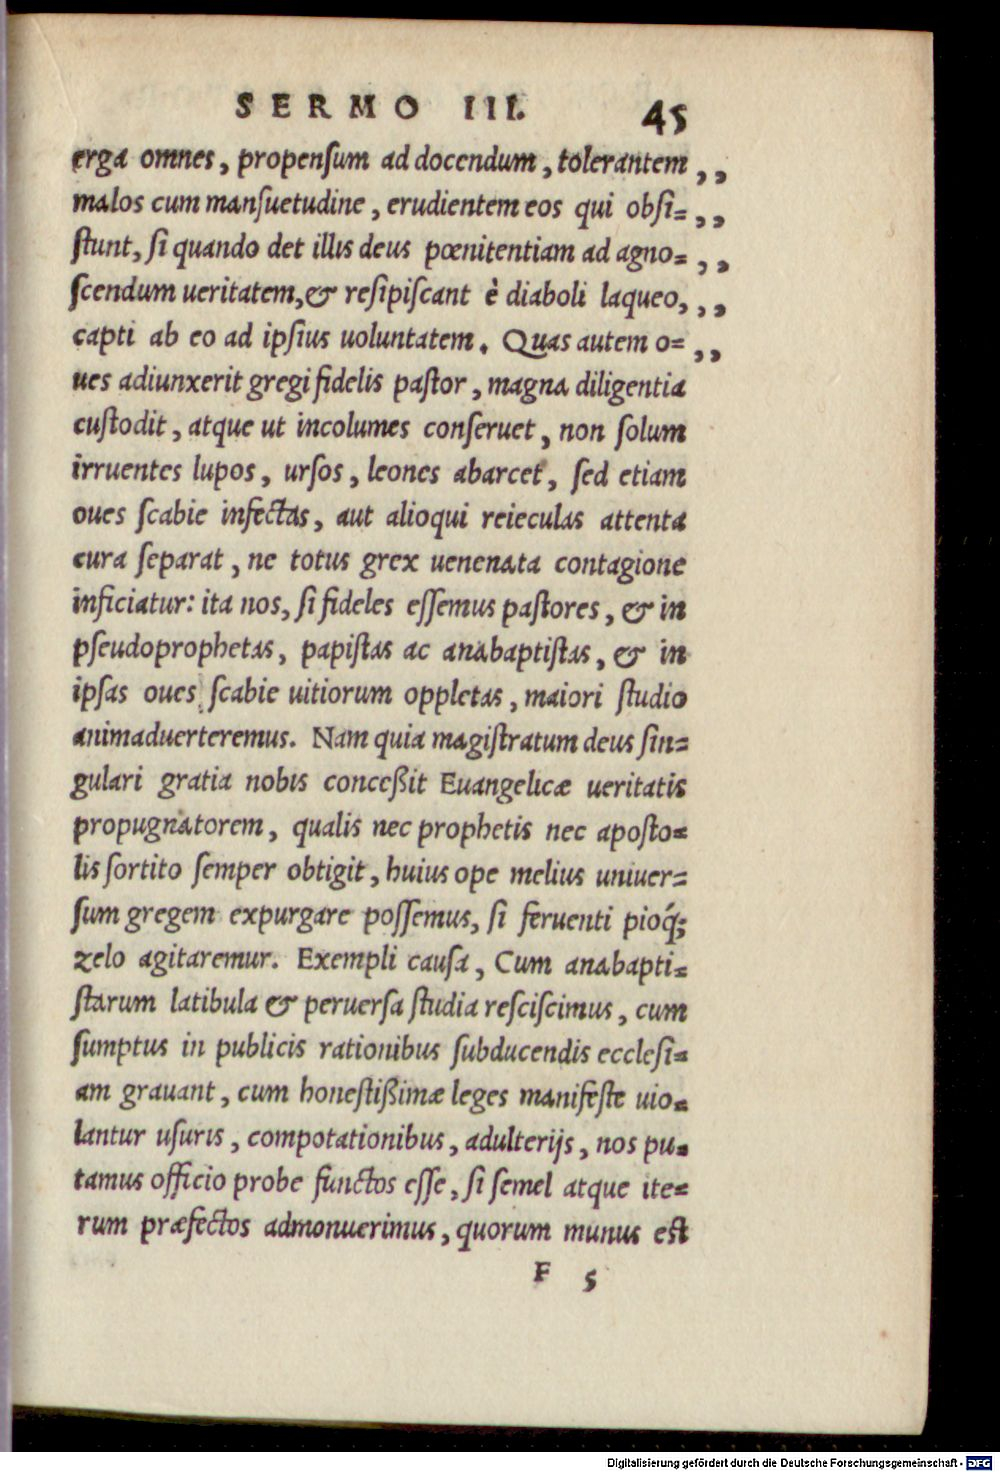 SERMO III. 45
erga omnes, propensum ad docendum, tolerantem ,,
malos cum mansuetudine, erudientem eos qui obsi= ,,
stunt, si quando det illis deus pœnitentiam ad agno= ,,
scendum ueritatem, & resipiscant è diaboli laqueo, ,,
capti ab eo ad ipsius uoluntatem. Quas autem o= ,,
ues adiunxerit gregi fidelis pastor, magna diligentia
custodit, atque ut incolumes conseruet, non solum
irruentes lupos, ursos, leones abarcet, sed etiam
oues scabie infectas, aut alioqui reieculas attenta
cura separat, ne totus grex uenenata contagione
inficiatur: ita nos, si fideles essemus pastores, & in
pseudoprophetas, papistas ac anabaptistas, & in
ipsas oues scabie uitiorum oppletas, maiori studio
animaduerteremus. Nam quia magistratum deus sin=
gulari gratia nobis conceßit Euangelicæ ueritatis
propugnatorem, qualis nec prophetis nec aposto=
lis sortito semper obtigit, huius ope melius uniuer=
sum gregem expurgare possemus, si feruenti pioq́;
zelo agitaremur. Exempli causa, Cum anabapti=
starum latibula & peruersa studia resciscimus, cum
sumptus in publicis rationibus subducendis ecclesi=
am grauant, cum honestißimæ leges manifeste uio=
lantur usuris, compotationibus, adulterijs, nos pu=
tamus officio probe functos esse, si semel atque ite=
rum præfectos admonuerimus, quorum munus est
F 5
Digitalisierung gefördert durch die Deutsche Forschungsgemeinschaft - DFG